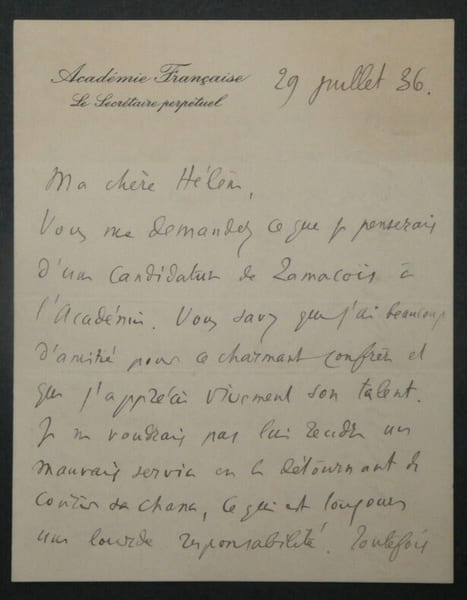 Académie Française
Le Secrétaire perpétuel
29 juillet 36.
Ma chère Hélène,
Vous me demandez ce que je penserais
d'une candidature de Zamacoïs à
l'Académie. Vous savez que j'ai beaucoup
d'amitié pour ce charmant confrère et
que j'apprécie vivement son talent.
Je ne voudrais pas lui rendre un
mauvais service en le détournant de
courir sa chance, ce qui est toujours
une lourde responsabilité. Toutefois